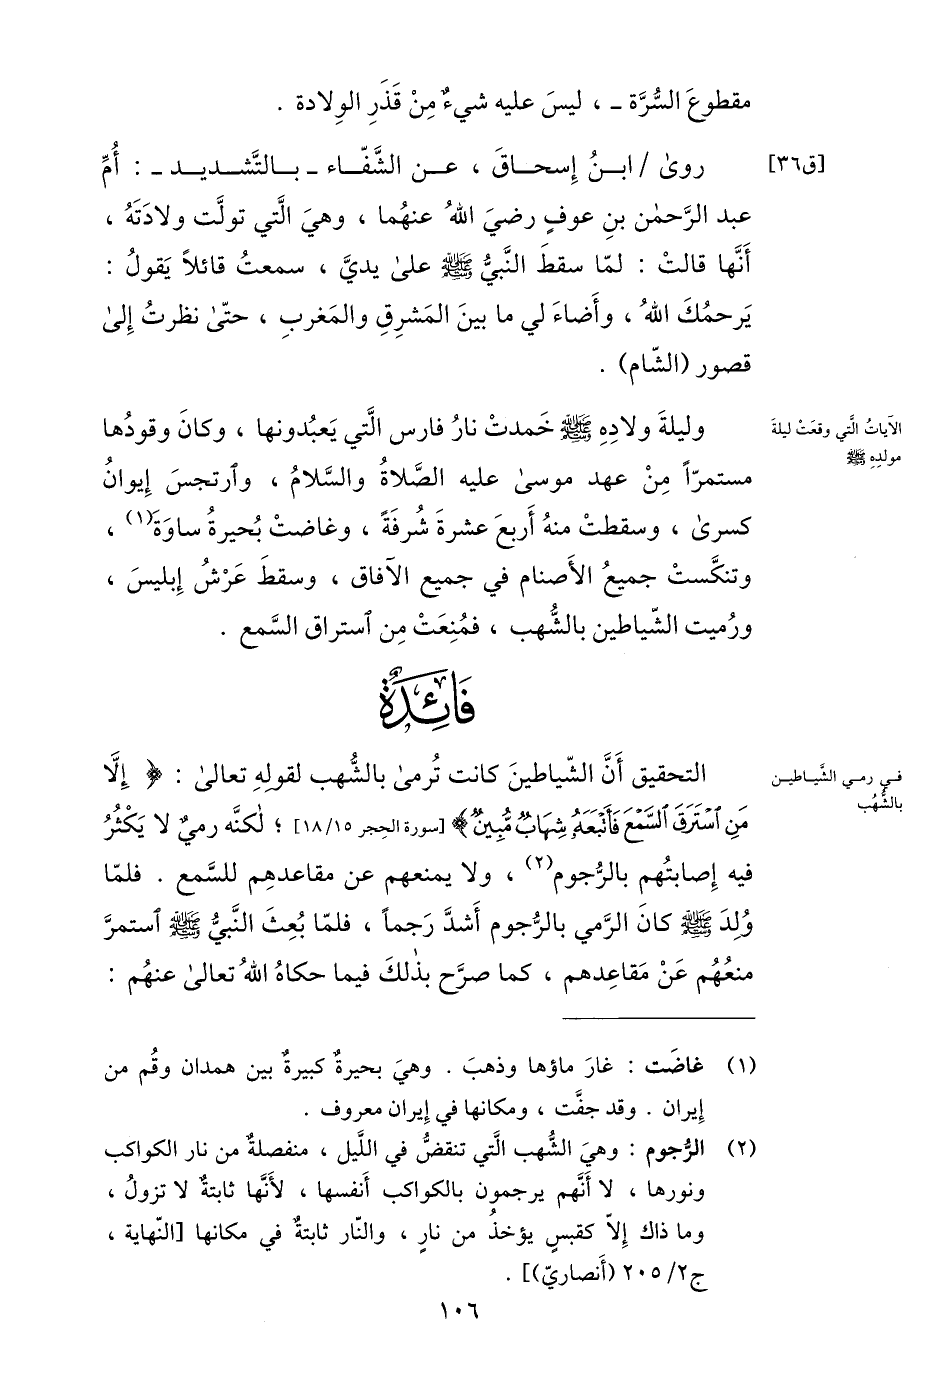 مقطوعَ السُّرَّة ـ ، ليسَ عليه شيءٌ مِنْ قَذَرِ الوِلادة .
[ق٣٦]
روىٰ / ابـنُ إسحـاقَ ، عـن الشَّفَّـاء ـ بـالتَّشـديـد ـ : أُمِّ
عبد الرَّحمٰن بنِ عوفٍ رضيَ اللهُ عنهُما ، وهيَ الَّتي تولَّت ولادَتَهُ ،
أَنَّها قالتْ : لمّا سقطَ النَّبيُّ ﷺ علىٰ يديَّ ، سمعتُ قائلاً يَقولُ :
يَرحمُكَ اللهُ ، وأَضاءَ لي ما بينَ المَشرقِ والمَغربِ ، حتّىٰ نظرتُ إلىٰ
قصور (الشّام) .
الآياتُ الَّتي وقعَتْ ليلةَ
مولدِهِ ﷺ
وليلةَ ولادِهِ ﷺ خَمدتْ نارُ فارس الَّتي يَعبُدونها ، وكانَ وقودُها
مستمرّاً مِنْ عهد موسىٰ عليه الصَّلاةُ والسَّلامُ ، وٱرتجسَ إيوانُ
كسرىٰ ، وسقطتْ منهُ أَربعَ عشرةَ شُرفَةً ، وغاضتْ بُحيرةُ ساوَةَ(١) ،
وتنكَّستْ جميعُ الأَصنام في جميع الآفاق ، وسقطَ عَرْشُ إبليسَ ،
ورُميت الشّياطين بالشُّهب ، فمُنِعَتْ مِن ٱستراق السَّمع .
فَائِدَةٌ
في رمي الشَّياطين
بالشُّهُب
التحقيق أَنَّ الشّياطينَ كانت تُرمىٰ بالشُّهب لقولِهِ تعالىٰ : ﴿ إِلَّا
مَنِ ٱسْتَرَقَ ٱلسَّمْعَ فَأَتْبَعَهُۥ شِهَابٌ مُّبِينٌ﴾ [سورة الحِجر ١٥/ ١٨] ؛ لٰكنَّه رميٌ لا يَكْثُرُ
فيه إصابتُهم بالرُّجوم(٢) ، ولا يمنعهم عن مقاعدهِم للسَّمع . فلمّا
وُلِدَ ﷺ كانَ الرَّمي بالرُّجوم أَشدَّ رَجماً ، فلمّا بُعِثَ النَّبيُّ ﷺ ٱستمرَّ
منعُهُم عَنْ مَقاعِدهم ، كما صرَّح بذٰلكَ فيما حكاهُ اللهُ تعالىٰ عنهُم :
(١) غاضَت : غارَ ماؤها وذهبَ . وهيَ بحيرةٌ كبيرةٌ بين همدان وقُم من
إيران . وقد جفَّت ، ومكانها في إيران معروف .
(٢) الرُّجوم : وهيَ الشُّهب الَّتي تنقضُّ في اللَّيل ، منفصلةٌ من نار الكواكب
ونورها ، لا أَنَّهم يرجمون بالكواكب أَنفسها ، لأَنَّها ثابتةٌ لا تزولُ ،
وما ذاك إلاّ كقبسٍ يؤخذُ من نارٍ ، والنّار ثابتةٌ في مكانها [النّهاية ،
ج٢/ ٢٠٥ (أَنصاريّ)] .
١٠٦